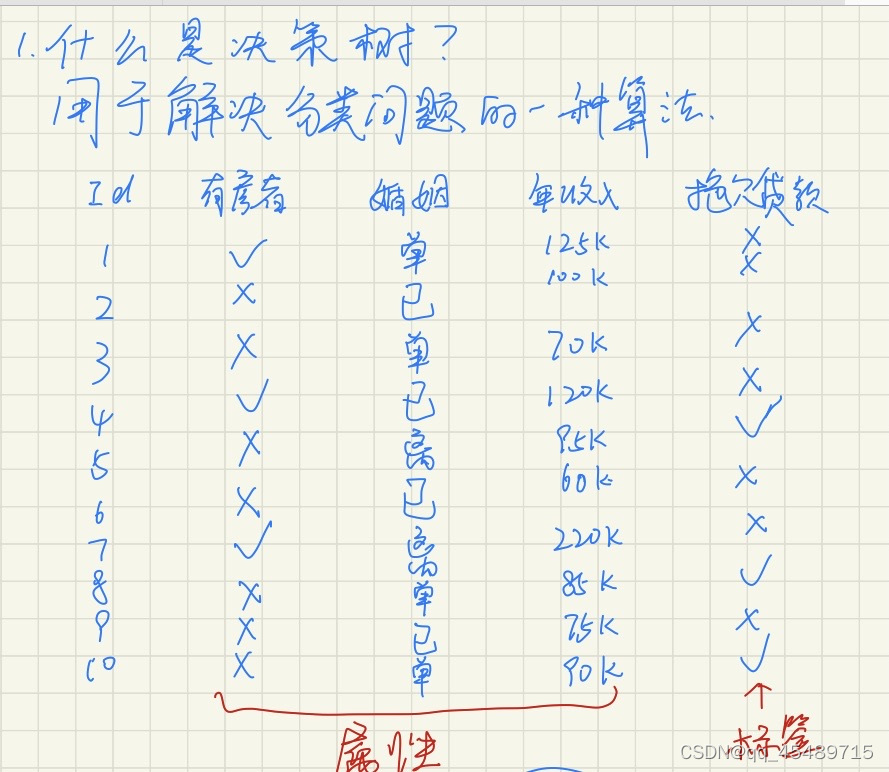 1. 什么是决策树？
用于解决分类问题的一种算法.
Id 有房者 婚姻 年收入 拖欠贷款
1 ✓ 单 125K ×
2 × 已 100K ×
3 × 单 70K ×
4 ✓ 已 120K ×
5 × 离 95K ✓
6 × 已 60K ×
7 ✓ 离 220K ×
8 × 单 85K ✓
9 × 已 75K ×
10 × 单 90K ✓
属性 标签
CSDN@qq_45489715